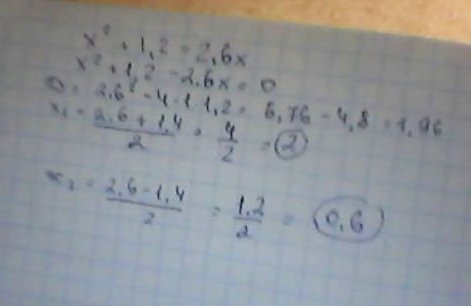 x² + 1,2 = 2,6x
x² + 1,2 - 2,6x = 0
D = 2,6² - 4·1·1,2 = 6,76 - 4,8 = 1,96
x₁ = (2,6 + 1,4)/2 = 4/2 = 2
x₂ = (2,6 - 1,4)/2 = 1,2/2 = 0,6